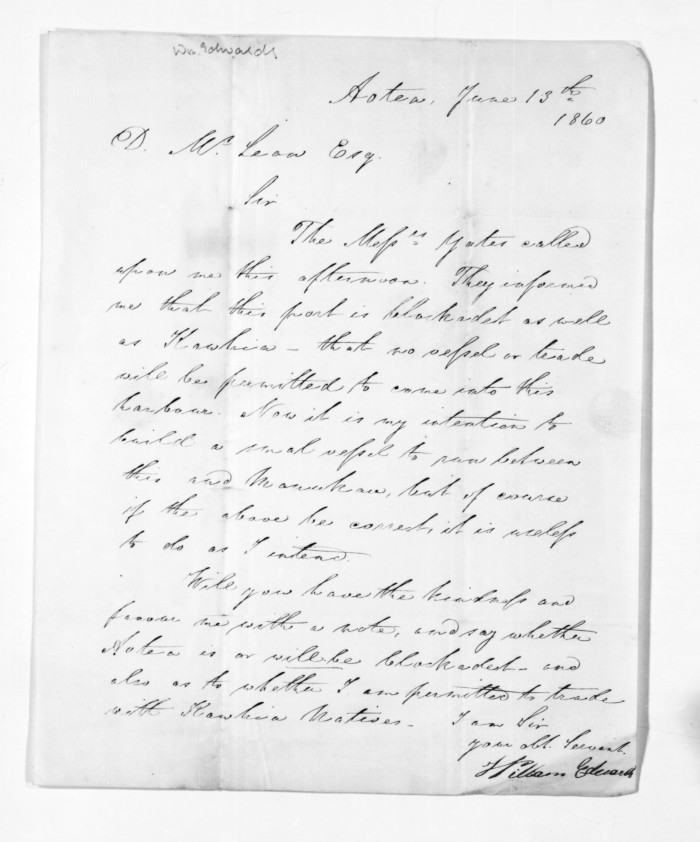 Wm. Edwards
Aotea, June 13th
1860
D. McLean Esq.
Sir
The Messrs Yates called
upon me this afternoon. They informed
me that this port is blockadet as well
as Kawhia – that no vessel or trade
will be permitted to come into this
harbour. Now it is my intention to
build a smal vessel to run between
this and Manukau, but of course
if the above be correct, it is useless
to do as I intend.
Will you have the kindness and
favour me with a note, and say whether
Aotea is or will be blockadet – and
also as to whether I am permitted to trade
with Kawhia Natives – I am Sir
your obt. Servant.
William Edwards